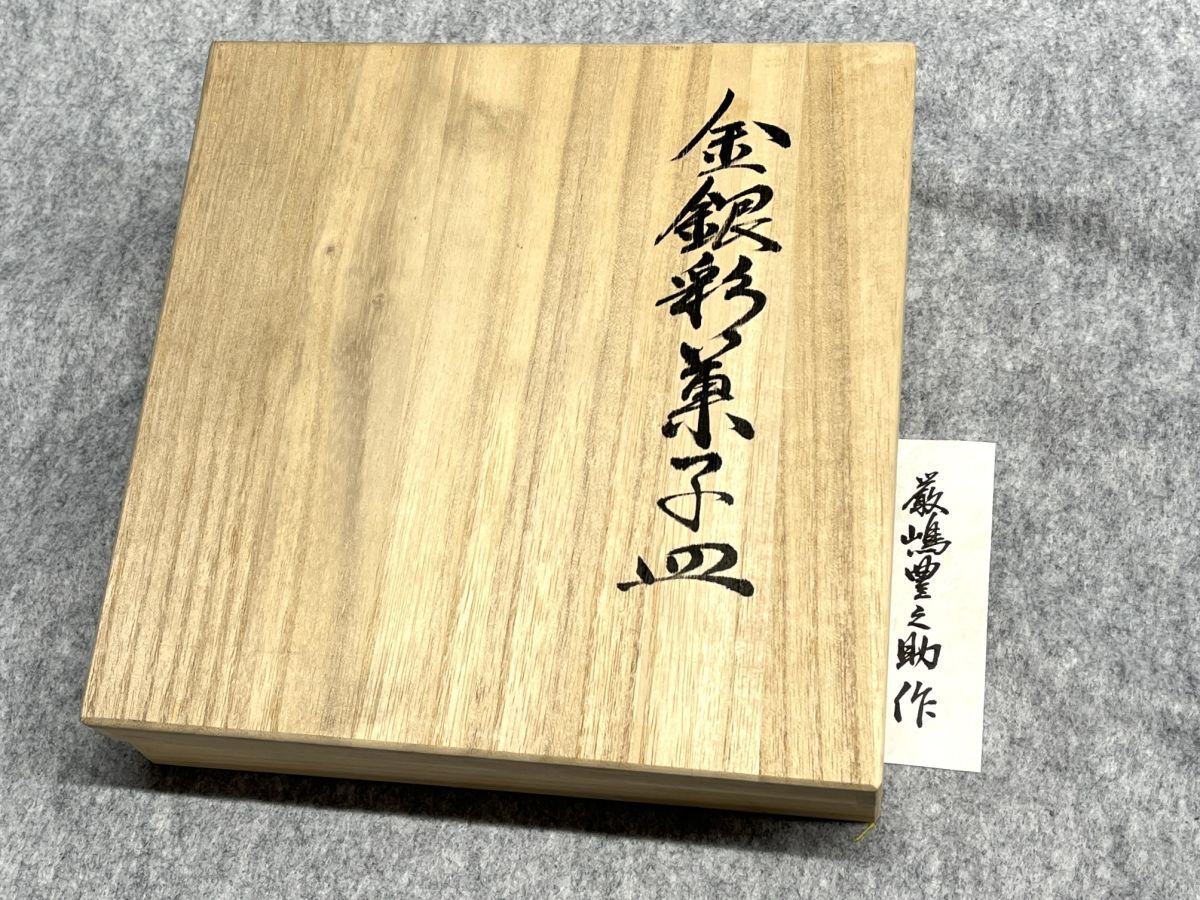 金銀彩菓子皿
厳嶋豊之助作